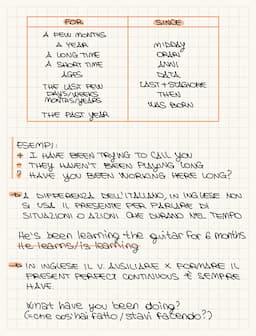 FOR SINCE
A FEW MONTHS
A YEAR MIDDAY
A LONG TIME ORARI
A SHORT TIME ANNI
AGES DATA
THE LAST FEW LAST + STAGIONE
DAYS/WEEKS THEN
MONTHS/YEARS WAS BORN
THE PAST YEAR
ESEMPI:
+ I HAVE BEEN TRYING TO CALL YOU
- THEY HAVEN'T BEEN PLAYING LONG
? HAVE YOU BEEN WORKING HERE LONG?
A DIFFERENZA DELL'ITALIANO, IN INGLESE NON
SI USA IL PRESENTE PER PARLARE DI
SITUAZIONI O AZIONI CHE DURANO NEL TEMPO
He's been learning the guitar for 6 months
He learns/is learning
IN INGLESE IL V. AUSILIARE X FORMARE IL
PRESENT PERFECT CONTINUOUS È SEMPRE
HAVE.
What have you been doing?
(=che cos'hai fatto/stavi facendo?)